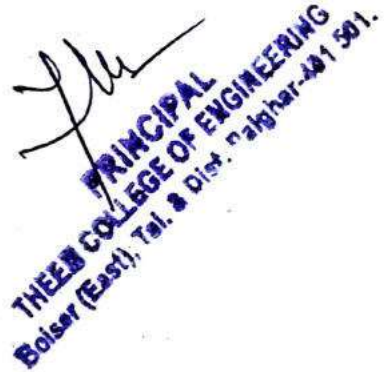 PRINCIPAL
THEEM COLLEGE OF ENGINEERING
Boisar (East), Tal. & Dist. Palghar-401 501.